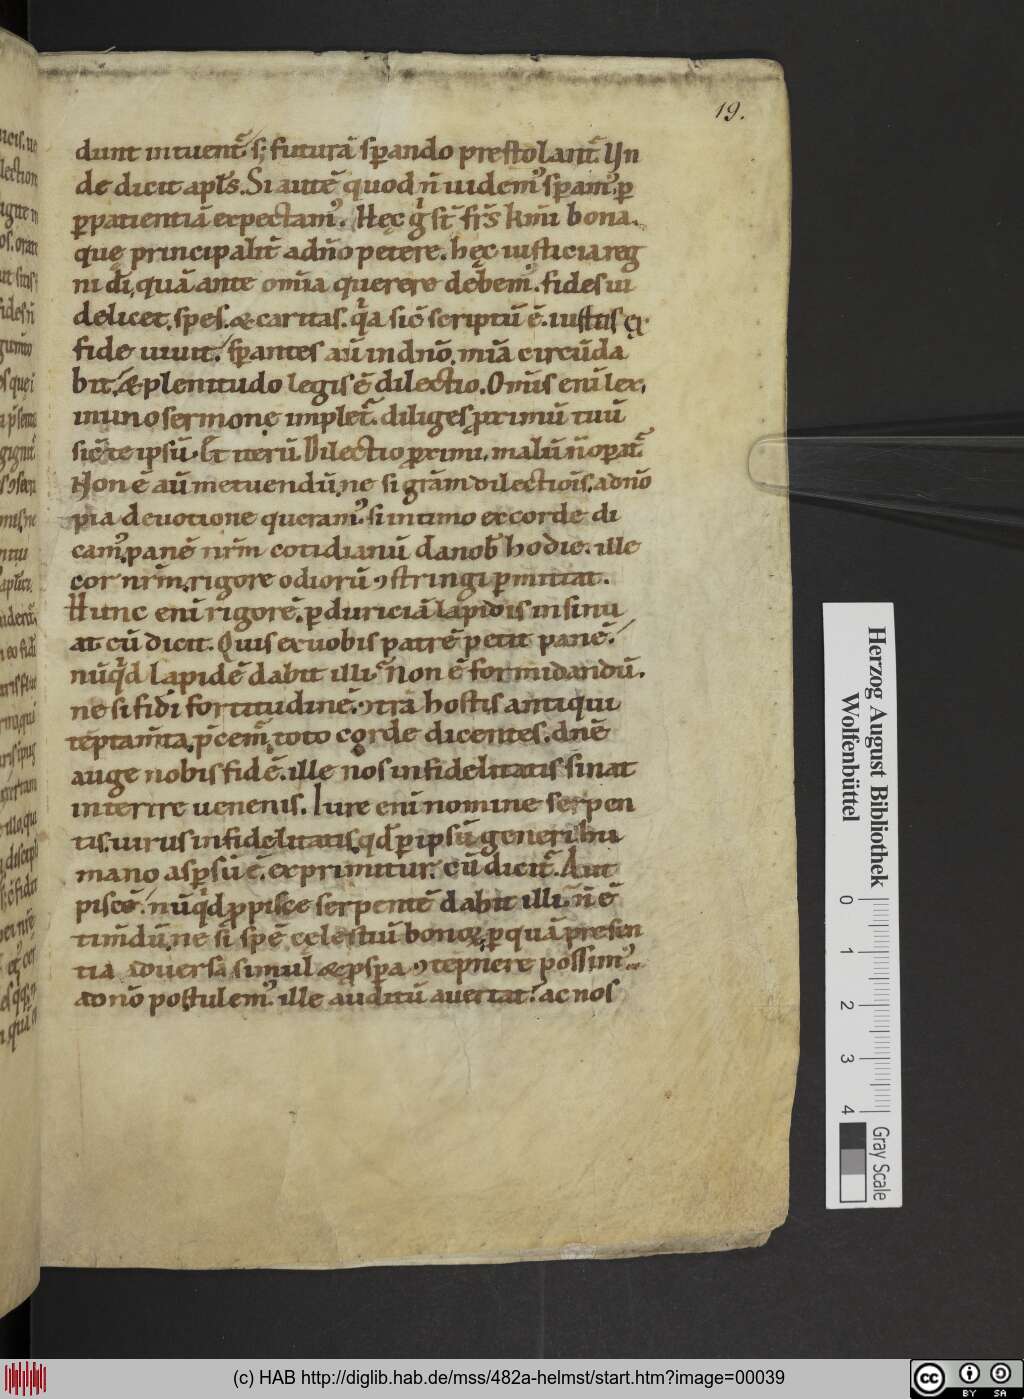 19.
dunt intuent᷑ s; futurā sp̄ando prestolant᷑. Un
de dicit apl̄s. Si autē quod n̄ uidem᷒ speram᷒ p̄
p̄patientiā expectam᷒. Hęc g̊ st̄ fr̄s km̄i bona.
quę principalit̄ adn̄o petere. hęc iusticia reg
ni dī, quā ante om̄ia querere debem᷒. fides ui
delicet. spes. & caritas. qͥa sic̄ scriptū ē. iustus ex
fide uiuit. sp̄antes aū in dn̄o. mīa circūda
bit. & plenitudo legis ē dilectio. Om̄is enī lex.
in uno sermone implet᷑. diliges p̄ximū tuū
sic̄ te ipsū. Et iterū. Dilectio p̄ximi, malū n̄ op̄at᷑.
Non ē aū metuendū. ne si gr̄am dilectiōis. adn̄o
pia deuotione queram᷒. si intimo ex corde di
cam᷒. panē nr̄m cotidianū da nob̄ hodie. ille
cor nr̄m. rigore odiorū ꝯstringi p̄mittat.
Hunc enī rigorē. p̄ duriciā lapidis insinu
at cū dicit. Quis ex uobis patrē petit panē.
nūqͥd lapidē dabit illi? Non ē formidandū.
ne si fidī fortitudinē. ꝯtrā hostis antiqui
tēptam̄ta. p̄cem᷑. toto corde dicentes. dn̄e
auge nobis fidē. ille nos infidelitatis sinat
interire uenenis. Iure enī nomine serpen
tis. uirus infidelitatis. qd̄ p̄ ipsū generi hu
mano aspsū ē. exprimitur. cū dicit᷑. Aut
piscē. nūqͥd p̄ pisce serpentē dabit illi? n̄ ē
tim̄dū. ne si spē cęlestiū bonoꝝ. p̄ quā presen
tia aduersa simul & p̄sp̄a ꝯtēpnere possim᷒.
adn̄o postulem᷒. ille auditū auertat? ac nos
Herzog August Bibliothek
Wolfenbüttel
0 1 2 3 4
Gray Scale
(c) HAB http://diglib.hab.de/mss/482a-helmst/start.htm?image=00039
cc BY SA